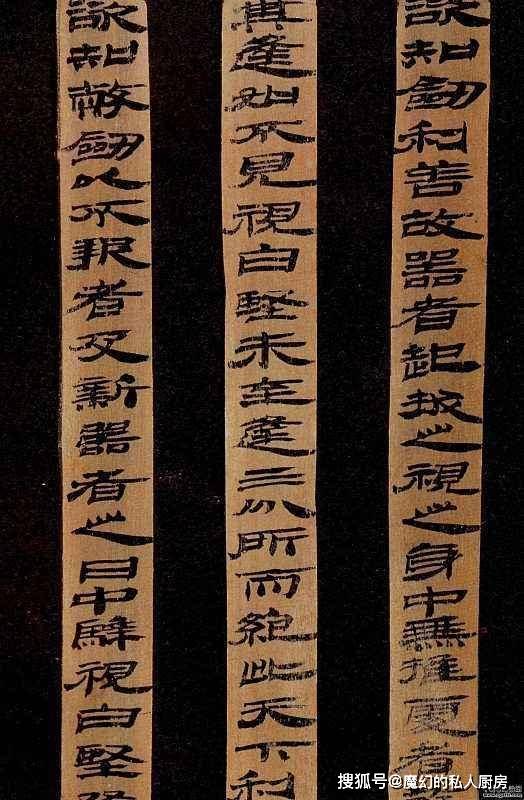 欲知劍利善故器者起拔之視之身中無推處者
其逢如不見視白堅未至逢三分所而絕此天下利
欲知敝劍以不報者及新器者之日中騂視白堅
搜狐号@魔幻的私人厨房